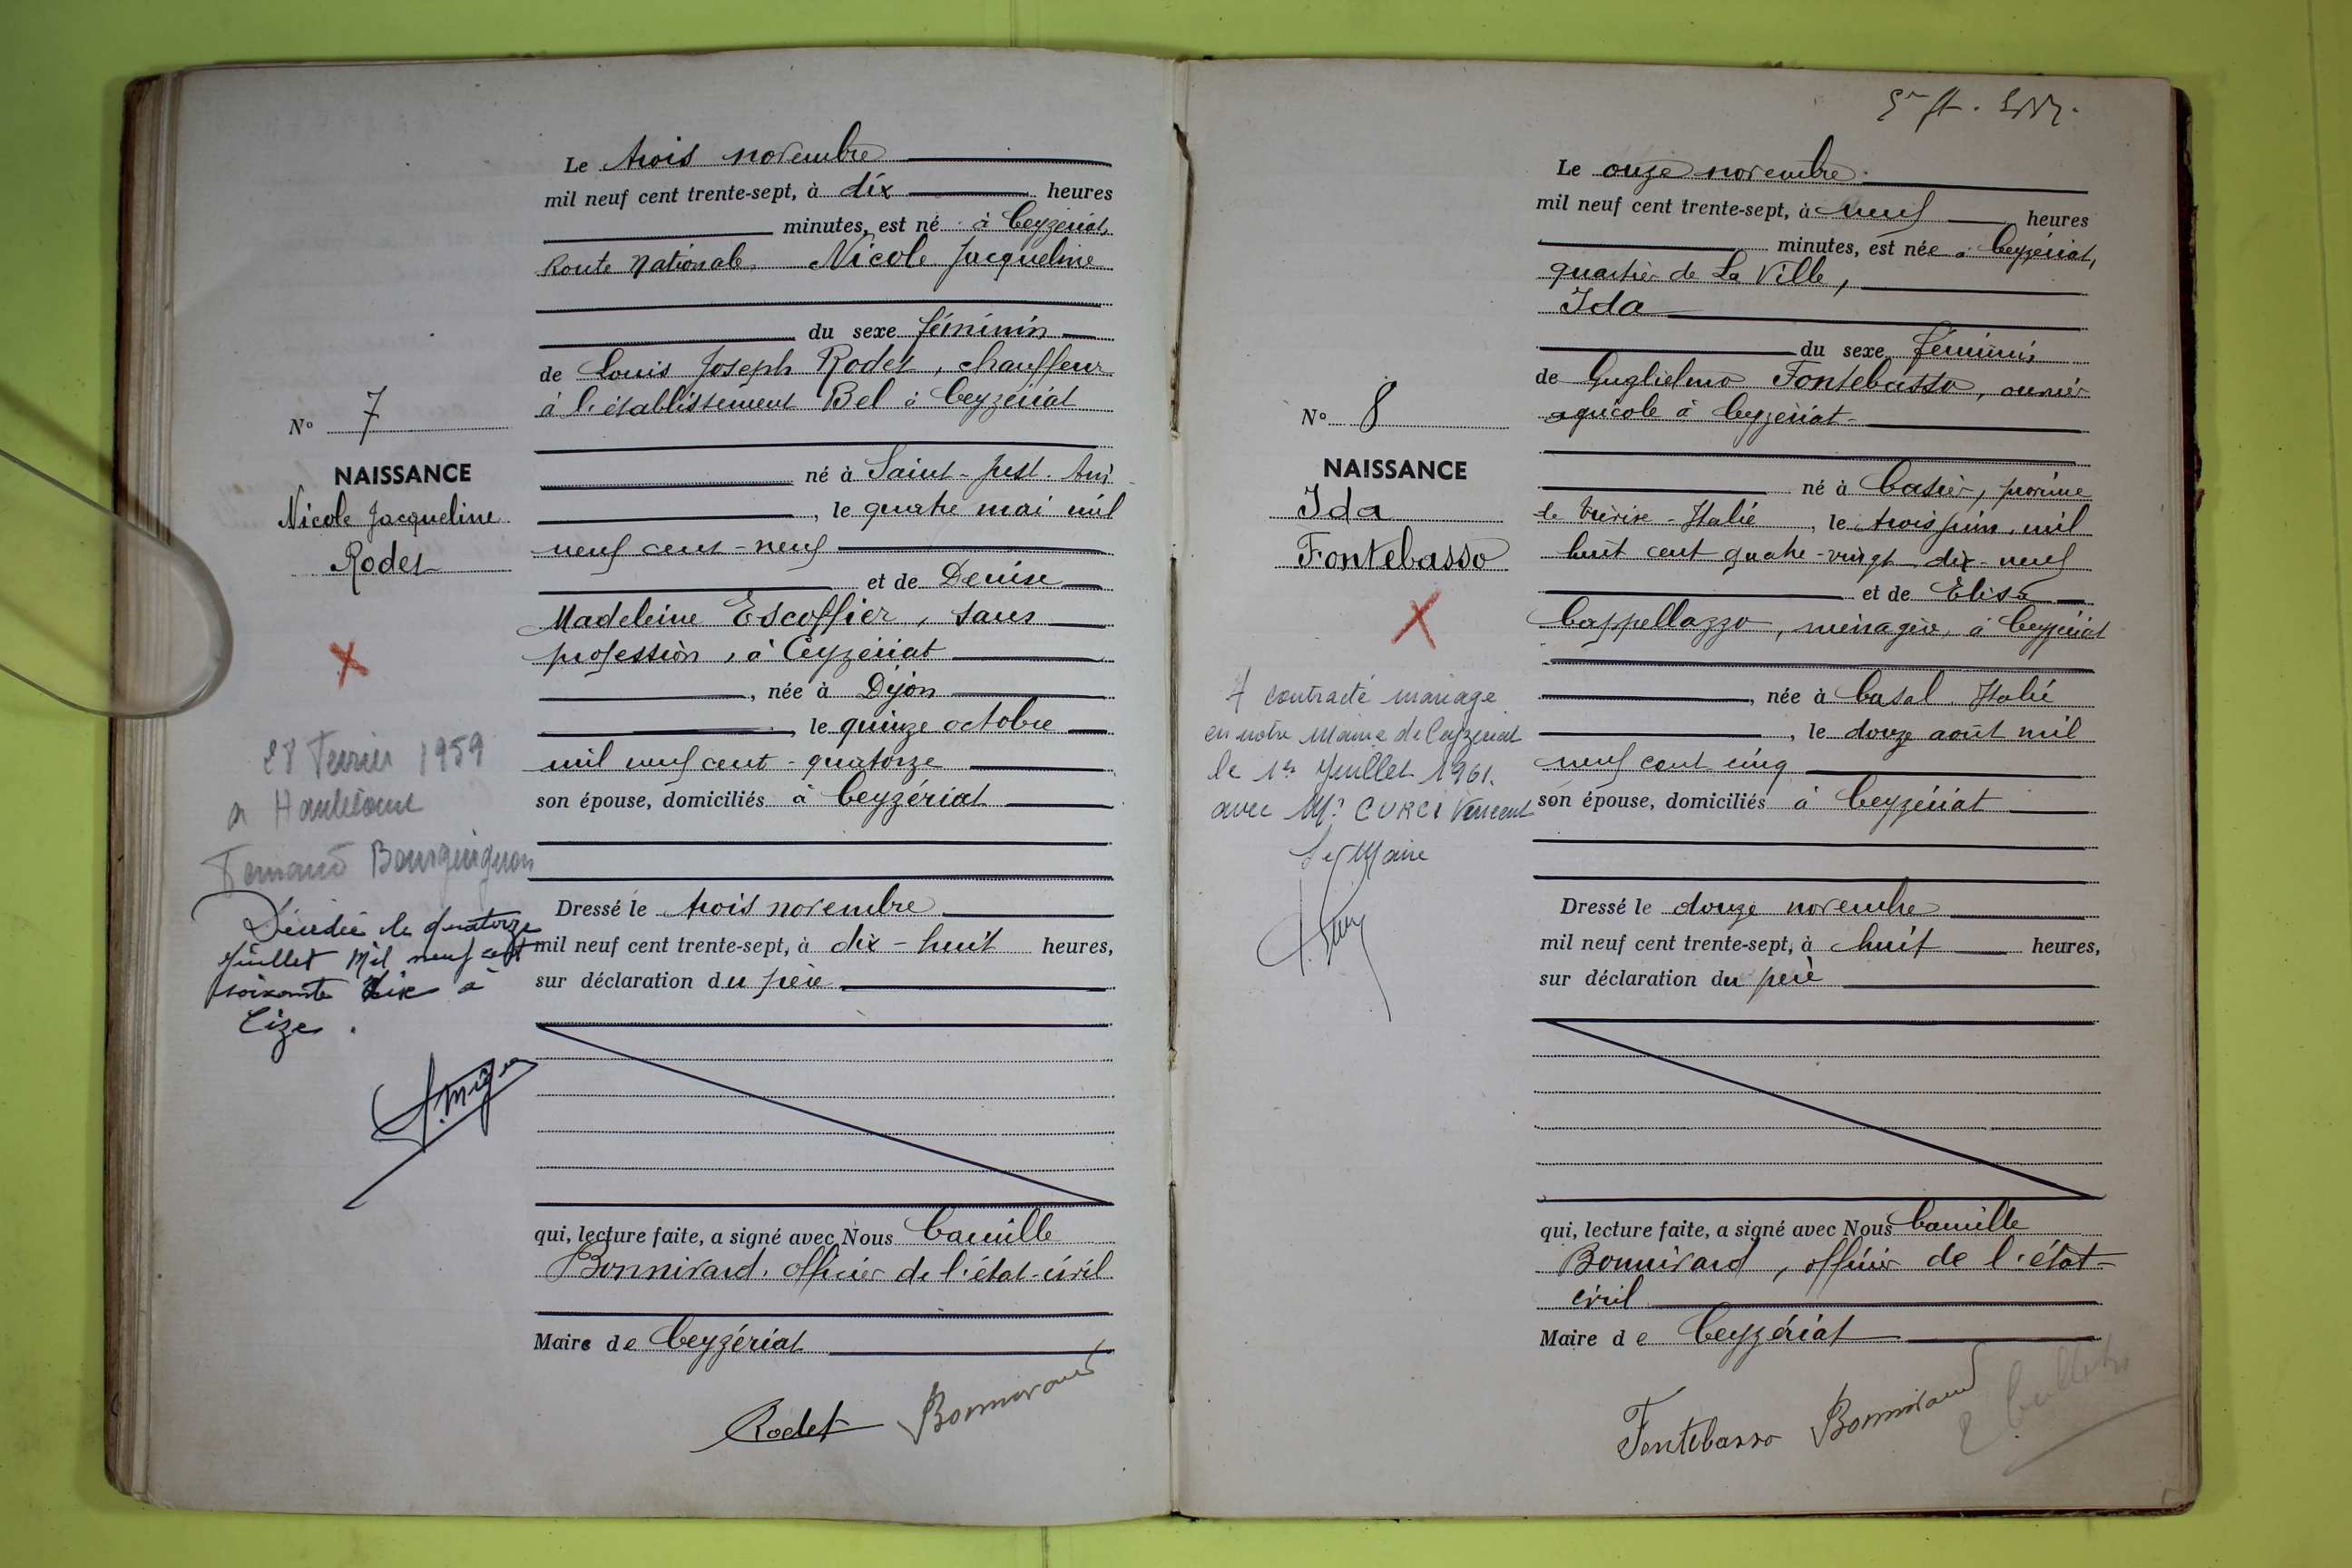 Le trois novembre
mil neuf cent trente-sept, à dix heures
minutes, est né à Ceyzériat,
Route Nationale, Nicole Jacqueline
du sexe féminin
de Louis Joseph Rodet, chauffeur
à l'établissement Bel à Ceyzériat
né à Saint-Just. Ain
, le quatre mai mil
neuf cent-neuf
et de Denise
Madeleine Escoffier, sans
profession, à Ceyzériat
, née à Dijon
, le quinze octobre
mil neuf cent-quatorze
son épouse, domiciliés à Ceyzériat
Dressé le trois novembre
mil neuf cent trente-sept, à dix-huit heures,
sur déclaration du père
qui, lecture faite, a signé avec Nous Camille
Bonnivard, officier de l'état-civil
Maire de Ceyzériat
Rodet Bonnivard
No 7
NAISSANCE
Nicole Jacqueline
Rodet
28 Février 1959
a
Fernand Bourguignon
Décédée le quatorze
juillet Mil neuf cent
soixante dix à
Cize.
Le onze novembre
mil neuf cent trente-sept, à neuf heures
minutes, est née à Ceyzériat,
quartier de La Ville,
Ida
du sexe féminin
de Guglielmo Fontebasso, ouvrier
agricole à Ceyzériat
né à Casier, province
de Trévise-Italie, le trois juin mil
huit cent quatre-vingt dix-neuf
et de Elisa
Cappellazzo, ménagère, à Ceyzériat
, née à Casal. Italie
, le douze août mil
neuf cent cinq
son épouse, domiciliés à Ceyzériat
Dressé le douze novembre
mil neuf cent trente-sept, à huit heures,
sur déclaration du père
qui, lecture faite, a signé avec Nous Camille
Bonnivard, officier de l'état-
civil
Maire de Ceyzériat
Fontebasso Bonnivard
No 8
NAISSANCE
Ida
Fontebasso
A contracté mariage
en notre Mairie de Ceyzériat
le 1er Juillet 1961.
avec Mr CURCI Vincent
Le Maire